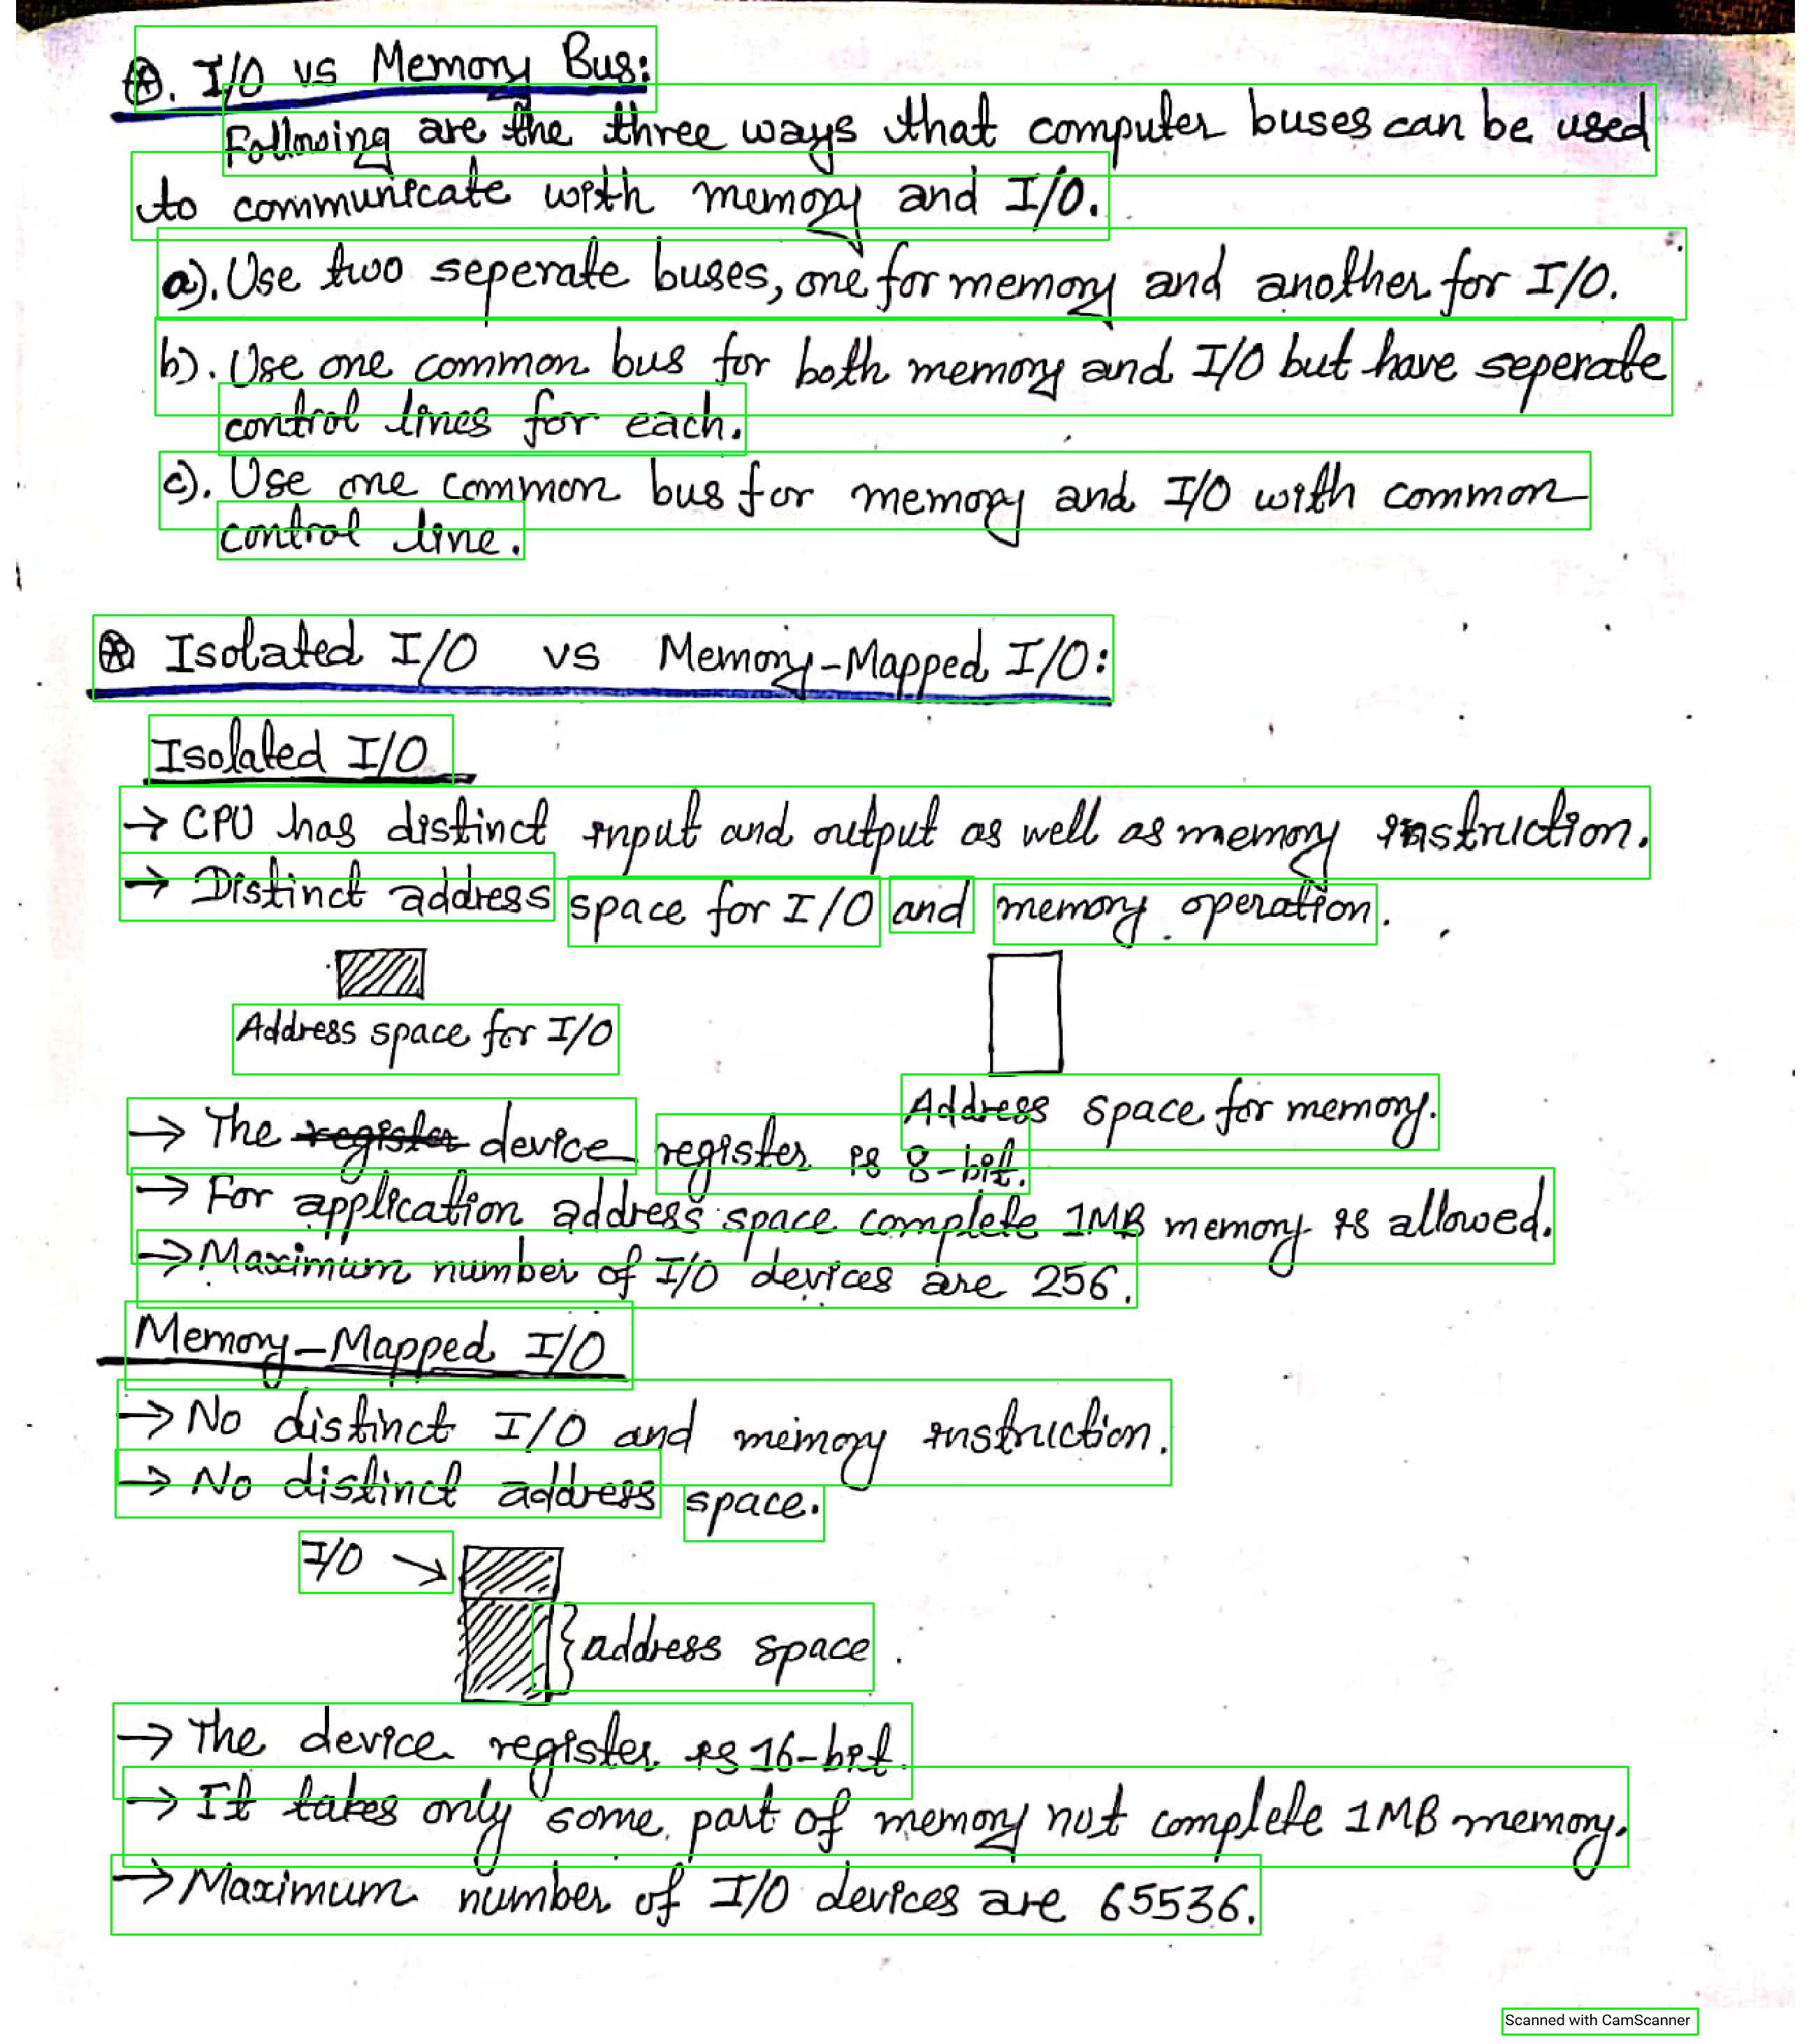 ⊛. I/O vs Memory Bus:
Following are the three ways that computer buses can be used
to communicate with memory and I/O.
a). Use two seperate buses, one for memory and another for I/O.
b). Use one common bus for both memory and I/O but have seperate
control lines for each.
c). Use one common bus for memory and I/O with common
control line.
⊛ Isolated I/O vs Memory-Mapped I/O:
Isolated I/O
→ CPU has distinct input and output as well as memory instruction.
→ Distinct address space for I/O and memory operation.
Address space for I/O
Address space for memory.
→ The register device register is 8-bit.
→ For application address space complete 1MB memory is allowed.
→ Maximum number of I/O devices are 256.
Memory-Mapped I/O
→ No distinct I/O and memory instruction.
→ No distinct address space.
I/O →
} address space.
→ The device register is 16-bit.
→ It takes only some part of memory not complete 1MB memory.
→ Maximum number of I/O devices are 65536.
Scanned with CamScanner